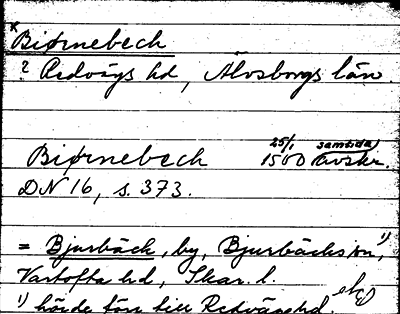 * Biørnebech
? Redvägs hd, Älvsborgs län
Biørnebech 25/1 1500 samtida avskr.
DN 16, s. 373.
= Bjurbäck, by, Bjurbäcks sn, 1)
Vartofta hd, Skar. l.
1) hörde förr till Redvägs hd.